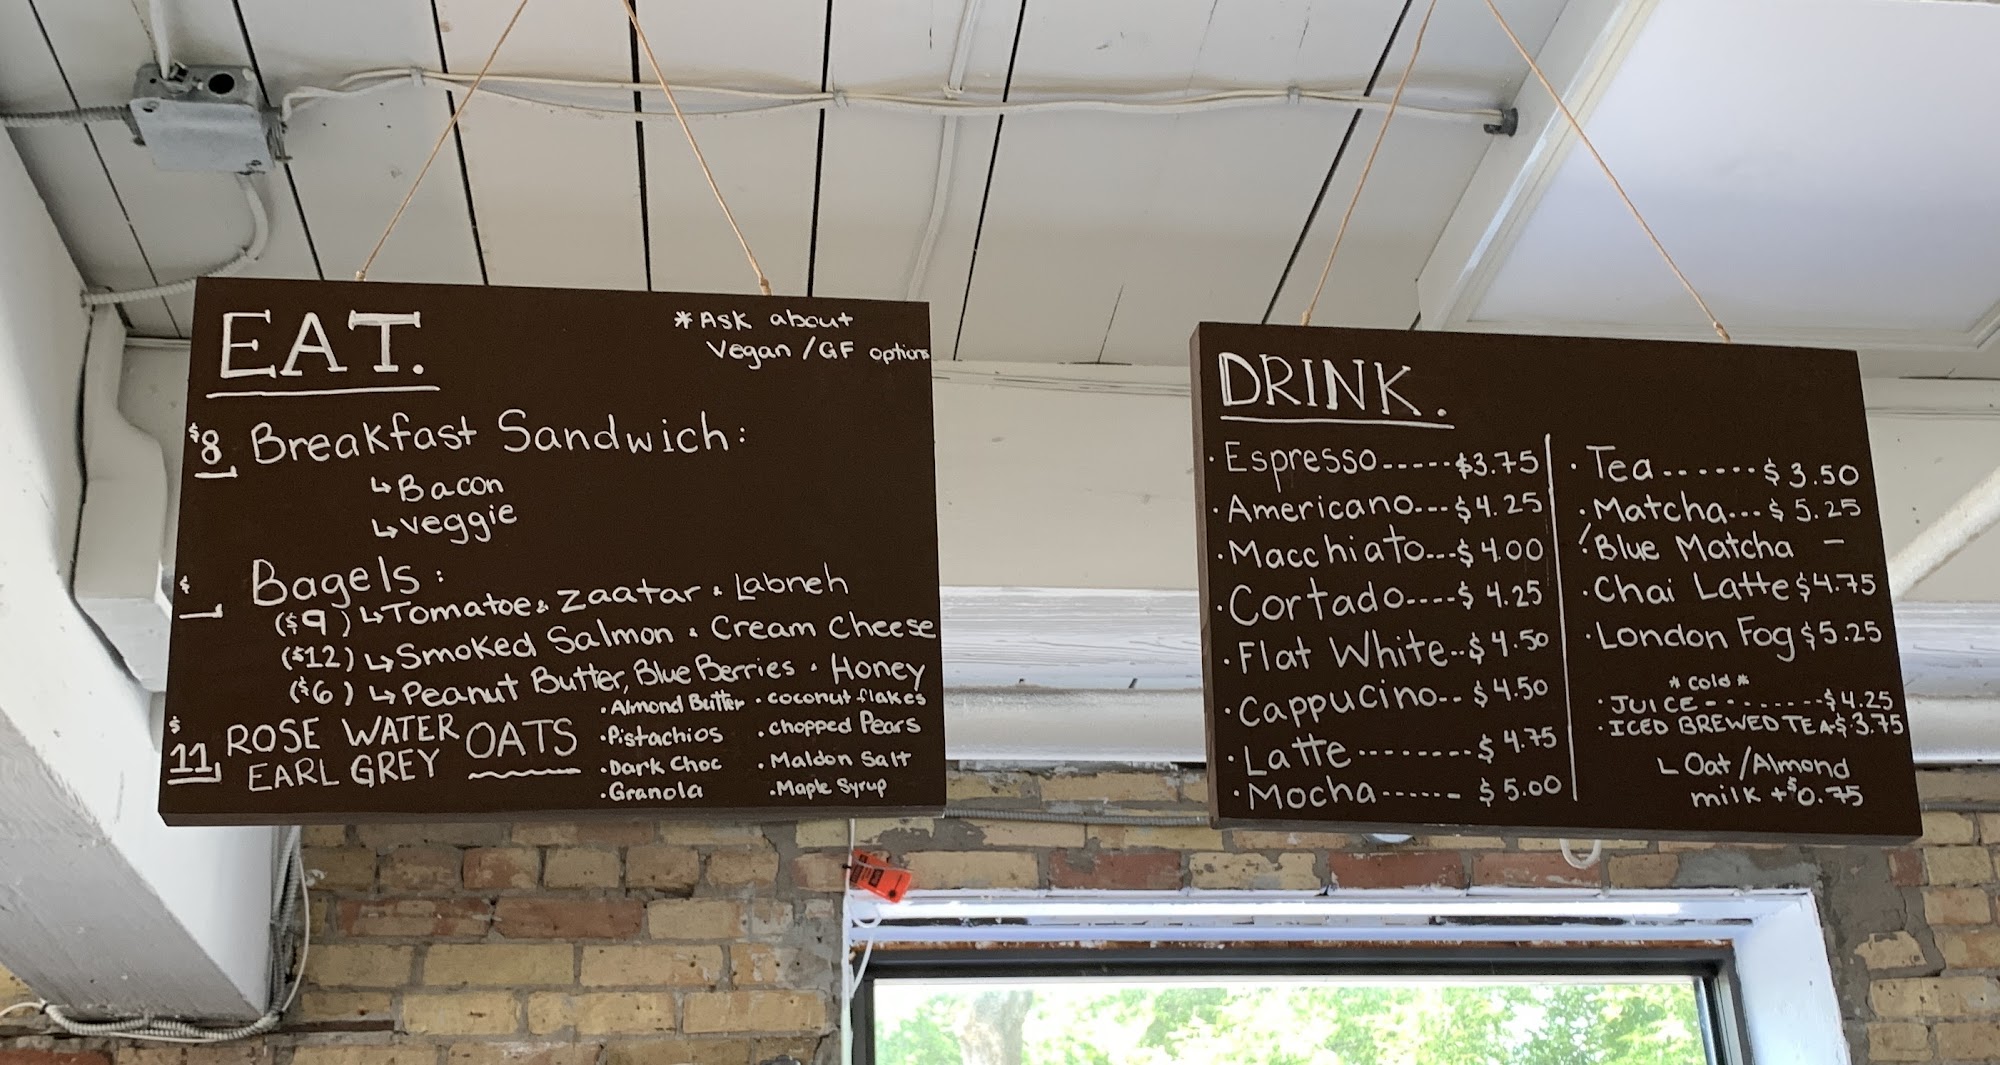 EAT.
*Ask about
Vegan/GF options
$8 Breakfast Sandwich:
↳Bacon
↳veggie
$
Bagels:
($9) ↳Tomatoe & Zaatar & Labneh
($12) ↳Smoked Salmon & Cream Cheese
($6) ↳Peanut Butter, Blue Berries • Honey
$11 ROSE WATER
EARL GREY
OATS
•Almond Butter
•Pistachios
•Dark Choc
•Granola
•coconut flakes
•chopped Pears
•Maldon Salt
•Maple Syrup
DRINK.
•Espresso-----$3.75
•Americano---$4.25
•Macchiato---$4.00
•Cortado----$4.25
•Flat White--$4.50
•Cappucino--$4.50
•Latte--------$4.75
•Mocha------$5.00
•Tea------$3.50
•Matcha---$5.25
/Blue Matcha —
•Chai Latte $4.75
•London Fog $5.25
*Cold*
•JUICE--------$4.25
•ICED BREWED TEA-$3.75
∟Oat/Almond
milk +$0.75